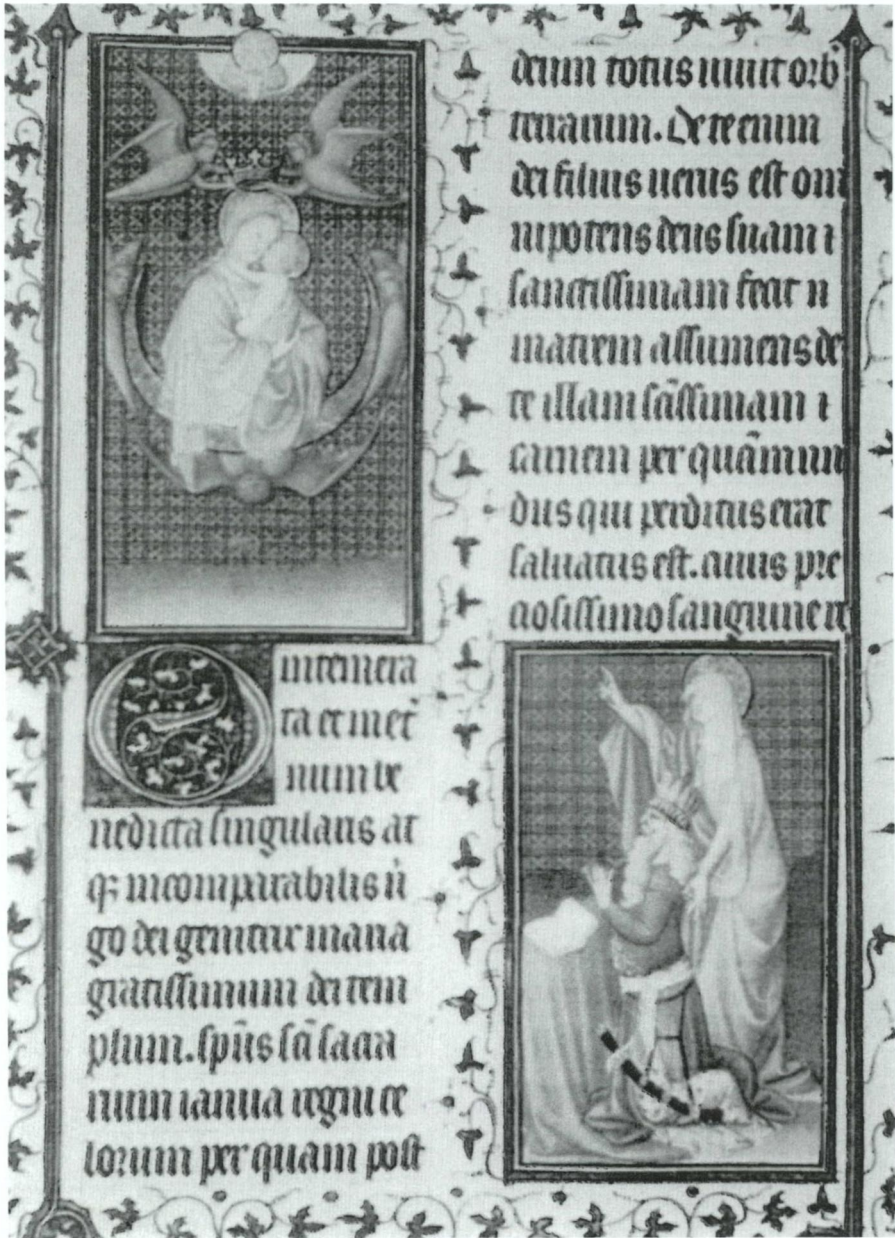 O intemera
ta et inet̄
num be
nedicta singularis at
qȝ incomparabilis ūi
go dei genitrix maria
gratissimum dei tem
plum. sp̄us sc̄i sacra
rium ianua regni ce
lorum per quam post
deum totus uiuit orb'
terrarum. De te enim
dei filius uerus est om
nipotens deus suam i
sanctissimam fecit n
matrem assumens de
te illam sāssimam i
carnem per quāmun
dus qui perditus erat
saluatus est. cuius pre
ciosissimo sanguine re